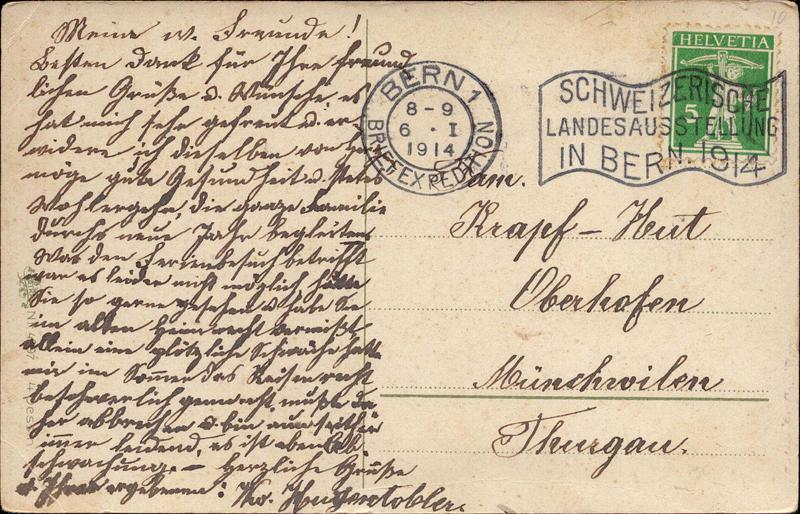 Meine w. Freunde!
Besten Dank für Ihre freund
lichen Grüße u. Wünsche es
hat mich sehr gefreut u. er-
widere ich dieselben von Herzen
möge gute Gesundheit u. stetes
Wohlergehn, die ganze Familie
durchs neue Jahr begleiten
Was den Ferienbesuch betrifft
war es leider nicht möglich hätte
Sie so gerne gesehen u. habe Sie
im alten Heim recht vermißt
allein eine plötzliche Schwäche hatte
mir im Sommer das Reisen recht
beschwerlich gemacht, mußte da
her abbrechen u. bin nun seither
immer leidend, es ist eben
schwachung. – Herzliche Grüße
v. Ihrer ergebenen:
BERN 1
8-9
6 · I
1914
BRIEFEXPEDITION
HELVETIA
5
SCHWEIZERISCHE
LANDESAUSSTELLUNG
IN BERN 1914
10
Fam.
Krapf-Hut
Oberhofen
Münchwilen
Thurgau.